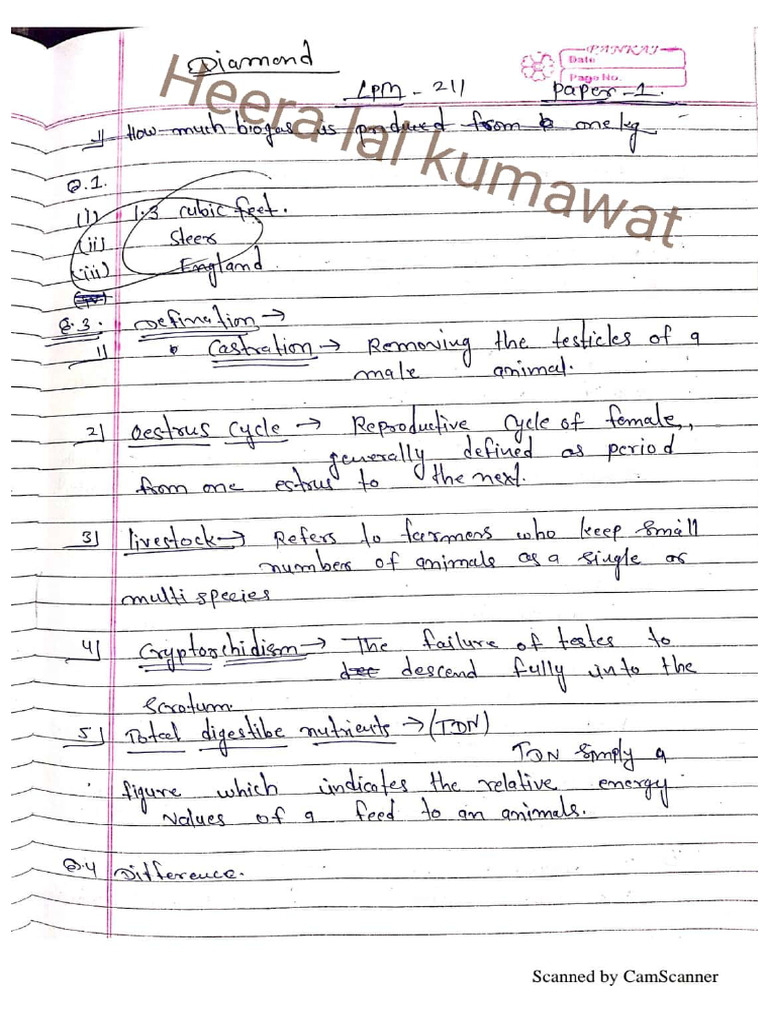 Diamond
PANKAJ
Date
Page No.
LPM - 211 Paper - 1.
Heera lal kumawat
1) How much biogas is produced from one kg
Q.1.
(i) 1.3 cubic feet.
(ii) Steer
(iii) England
Q.3. Defination →
1) Castration → Removing the testicles of a
male animal.
2) Oestrus Cycle → Reproductive cycle of female,,
generally defined as period
from one estrus to the next.
3) livestock → Refers to farmers who keep small
number of animals as a single or
multi species
4) Cryptorchidism → The failure of testes to
dec descend fully into the
Scrotum.
5) Total digestibe nutrients → (TDN)
TDN Simply a
figure which indicates the relative energy
values of a feed to an animals.
Q.4 Difference.
Scanned by CamScanner